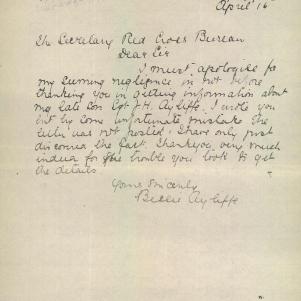 April 16
The Secretary Red Cross Bureau
Dear Sir
I must apologise for
my seeming negligence in not before
thanking you in getting information about
my late Son Sgt J.H. Ayliffe. I wrote you
but by some unfortunate mistake the
letter was not posted. I have only just
discovered the fact. Thankyou very much
indeed for the trouble you took to get
the details.
Yours Sincerely
Ayliffe